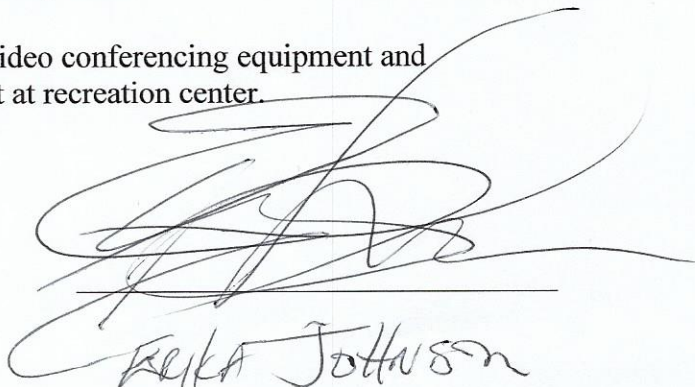 ideo conferencing equipment and
t at recreation center.
ERIKA JOHNSON